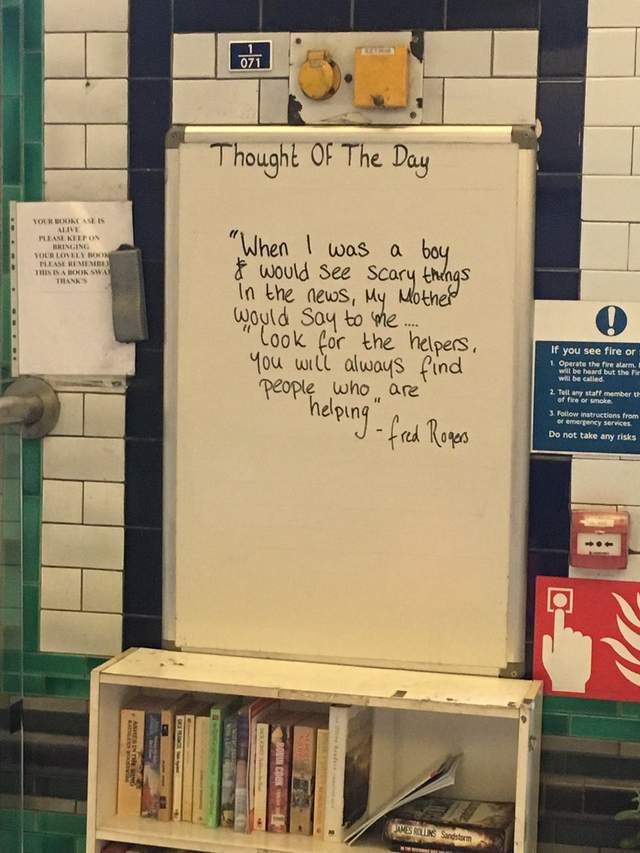 1
071
Thought Of The Day
"When I was a boy
I would see scary things
In the news, My Mother
would say to me ....
"Look for the helpers,
you will always find
people who are
helping"
- fred Rogers
YOUR BOOKCASE IS
ALIVE
PLEASE KEEP ON
BRINGING
YOUR LOVELY BOOK
PLEASE REMEMBE
THIS IS A BOOK SWA
THANK'S
If you see fire or
1. Operate the fire alarm.
will be heard but the Fir
will be called.
2. Tell any staff member th
of fire or smoke.
3. Follow instructions from
or emergency services.
Do not take any risks
JAMES ROLLINS Sandstorm